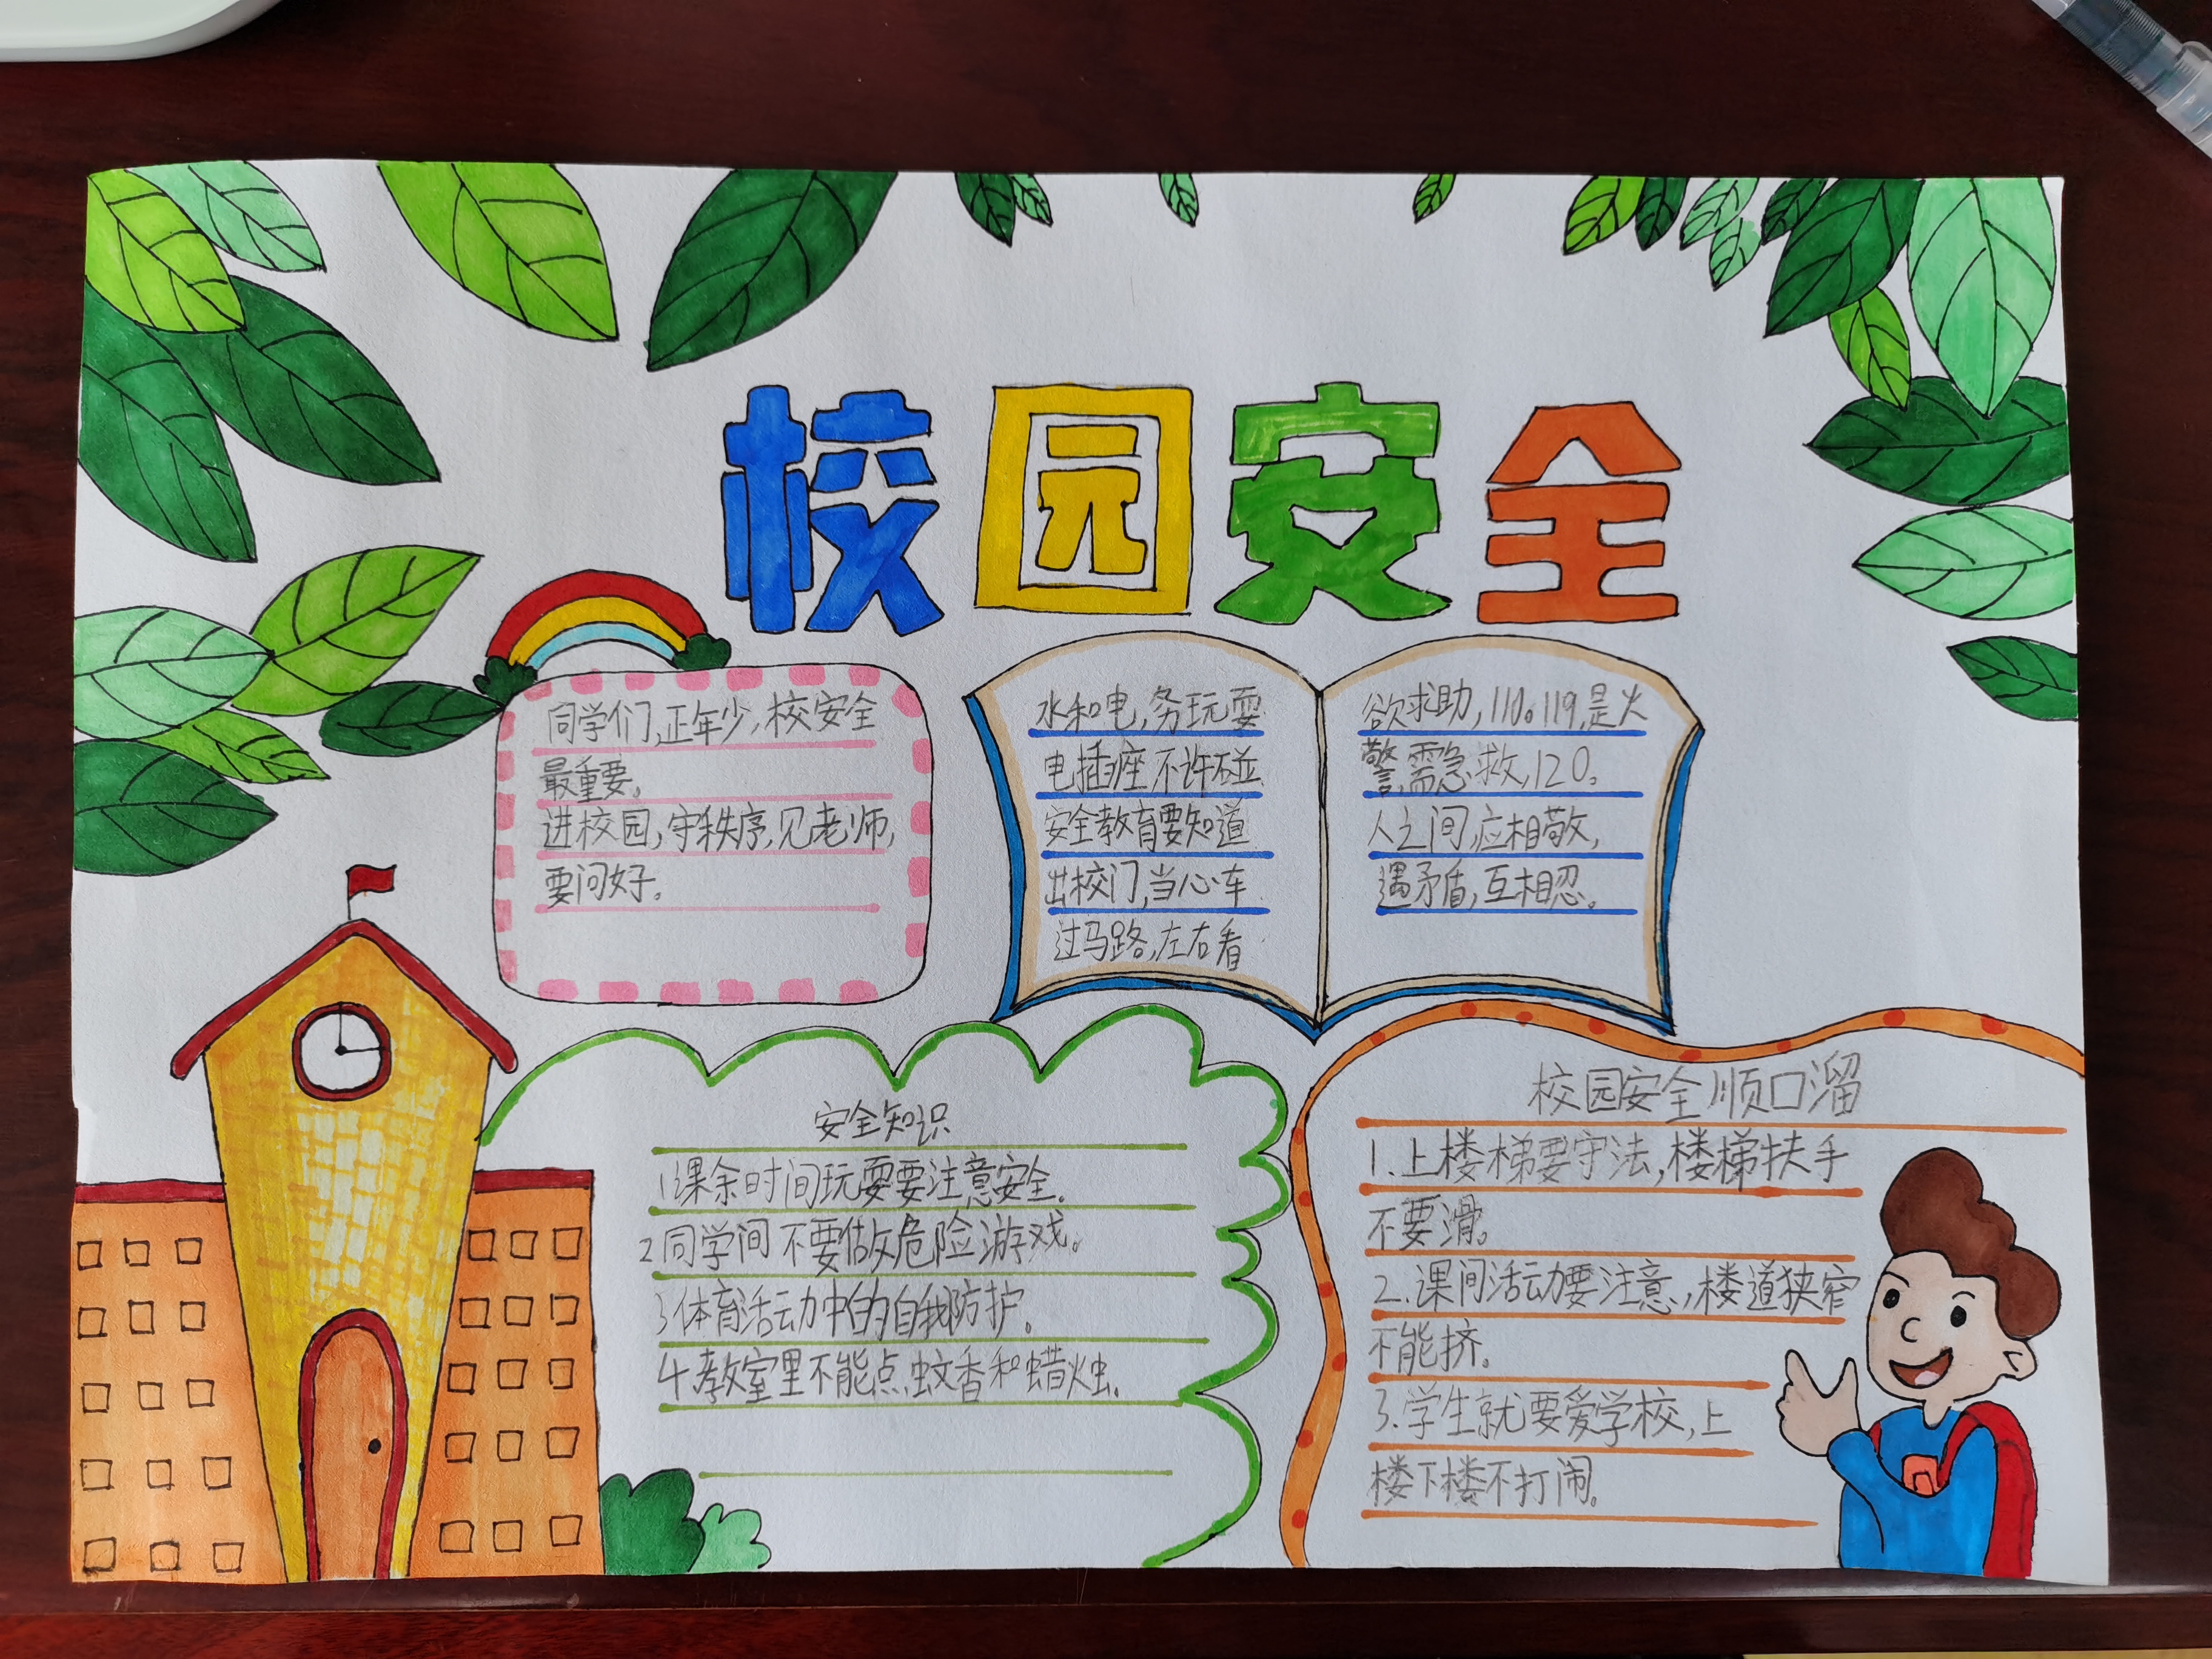 校园安全
同学们,正年少,校安全
最重要。
进校园,守秩序,见老师,
要问好。
水和电,务玩耍
电插座,不许碰
安全教育要知道
出校门,当心车
过马路,左右看
欲求助,110。119,是火
警,需急救,120。
人之间,应相敬,
遇矛盾,互相忍。
安全知识
1课余时间玩耍要注意安全。
2同学间不要做危险游戏。
3体育活动中的自我防护。
4教室里不能点蚊香和蜡烛。
校园安全顺口溜
1.上楼梯要守法,楼梯扶手
不要滑。
2.课间活动要注意,楼道狭窄
不能挤。
3.学生就要爱学校,上
楼下楼不打闹。